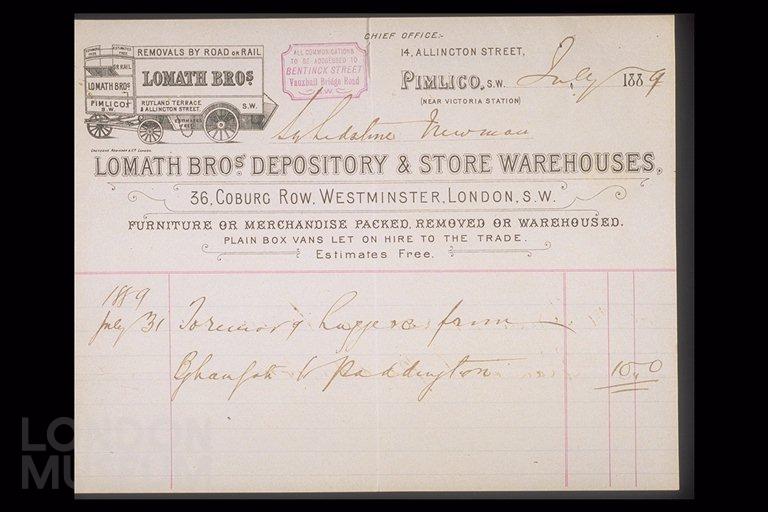 CHIEF OFFICE:-
14, ALLINGTON STREET,
PIMLICO, S.W. July 1889
(NEAR VICTORIA STATION)
ALL COMMUNICATIONS
TO BE ADDRESSED TO
BENTINCK STREET
Vauxhall Bridge Road
S.W.
ESTIMATES FREE
ESTIMATES FREE
REMOVALS BY ROAD OR RAIL
OR RAIL
LOMATH BROS
LOMATH BROS
PIMLICO
S.W.
RUTLAND TERRACE
& ALLINGTON STREET.
S.W.
ESTIMATES
FREE
Newman
LOMATH BROS DEPOSITORY & STORE WAREHOUSES,
36, COBURG ROW, WESTMINSTER, LONDON, S.W.
FURNITURE OR MERCHANDISE PACKED, REMOVED OR WAREHOUSED.
PLAIN BOX VANS LET ON HIRE TO THE TRADE.
Estimates Free.
1889
July 31 To removing luggage from
to Paddington 10,,0
LONDON
MUSEUM